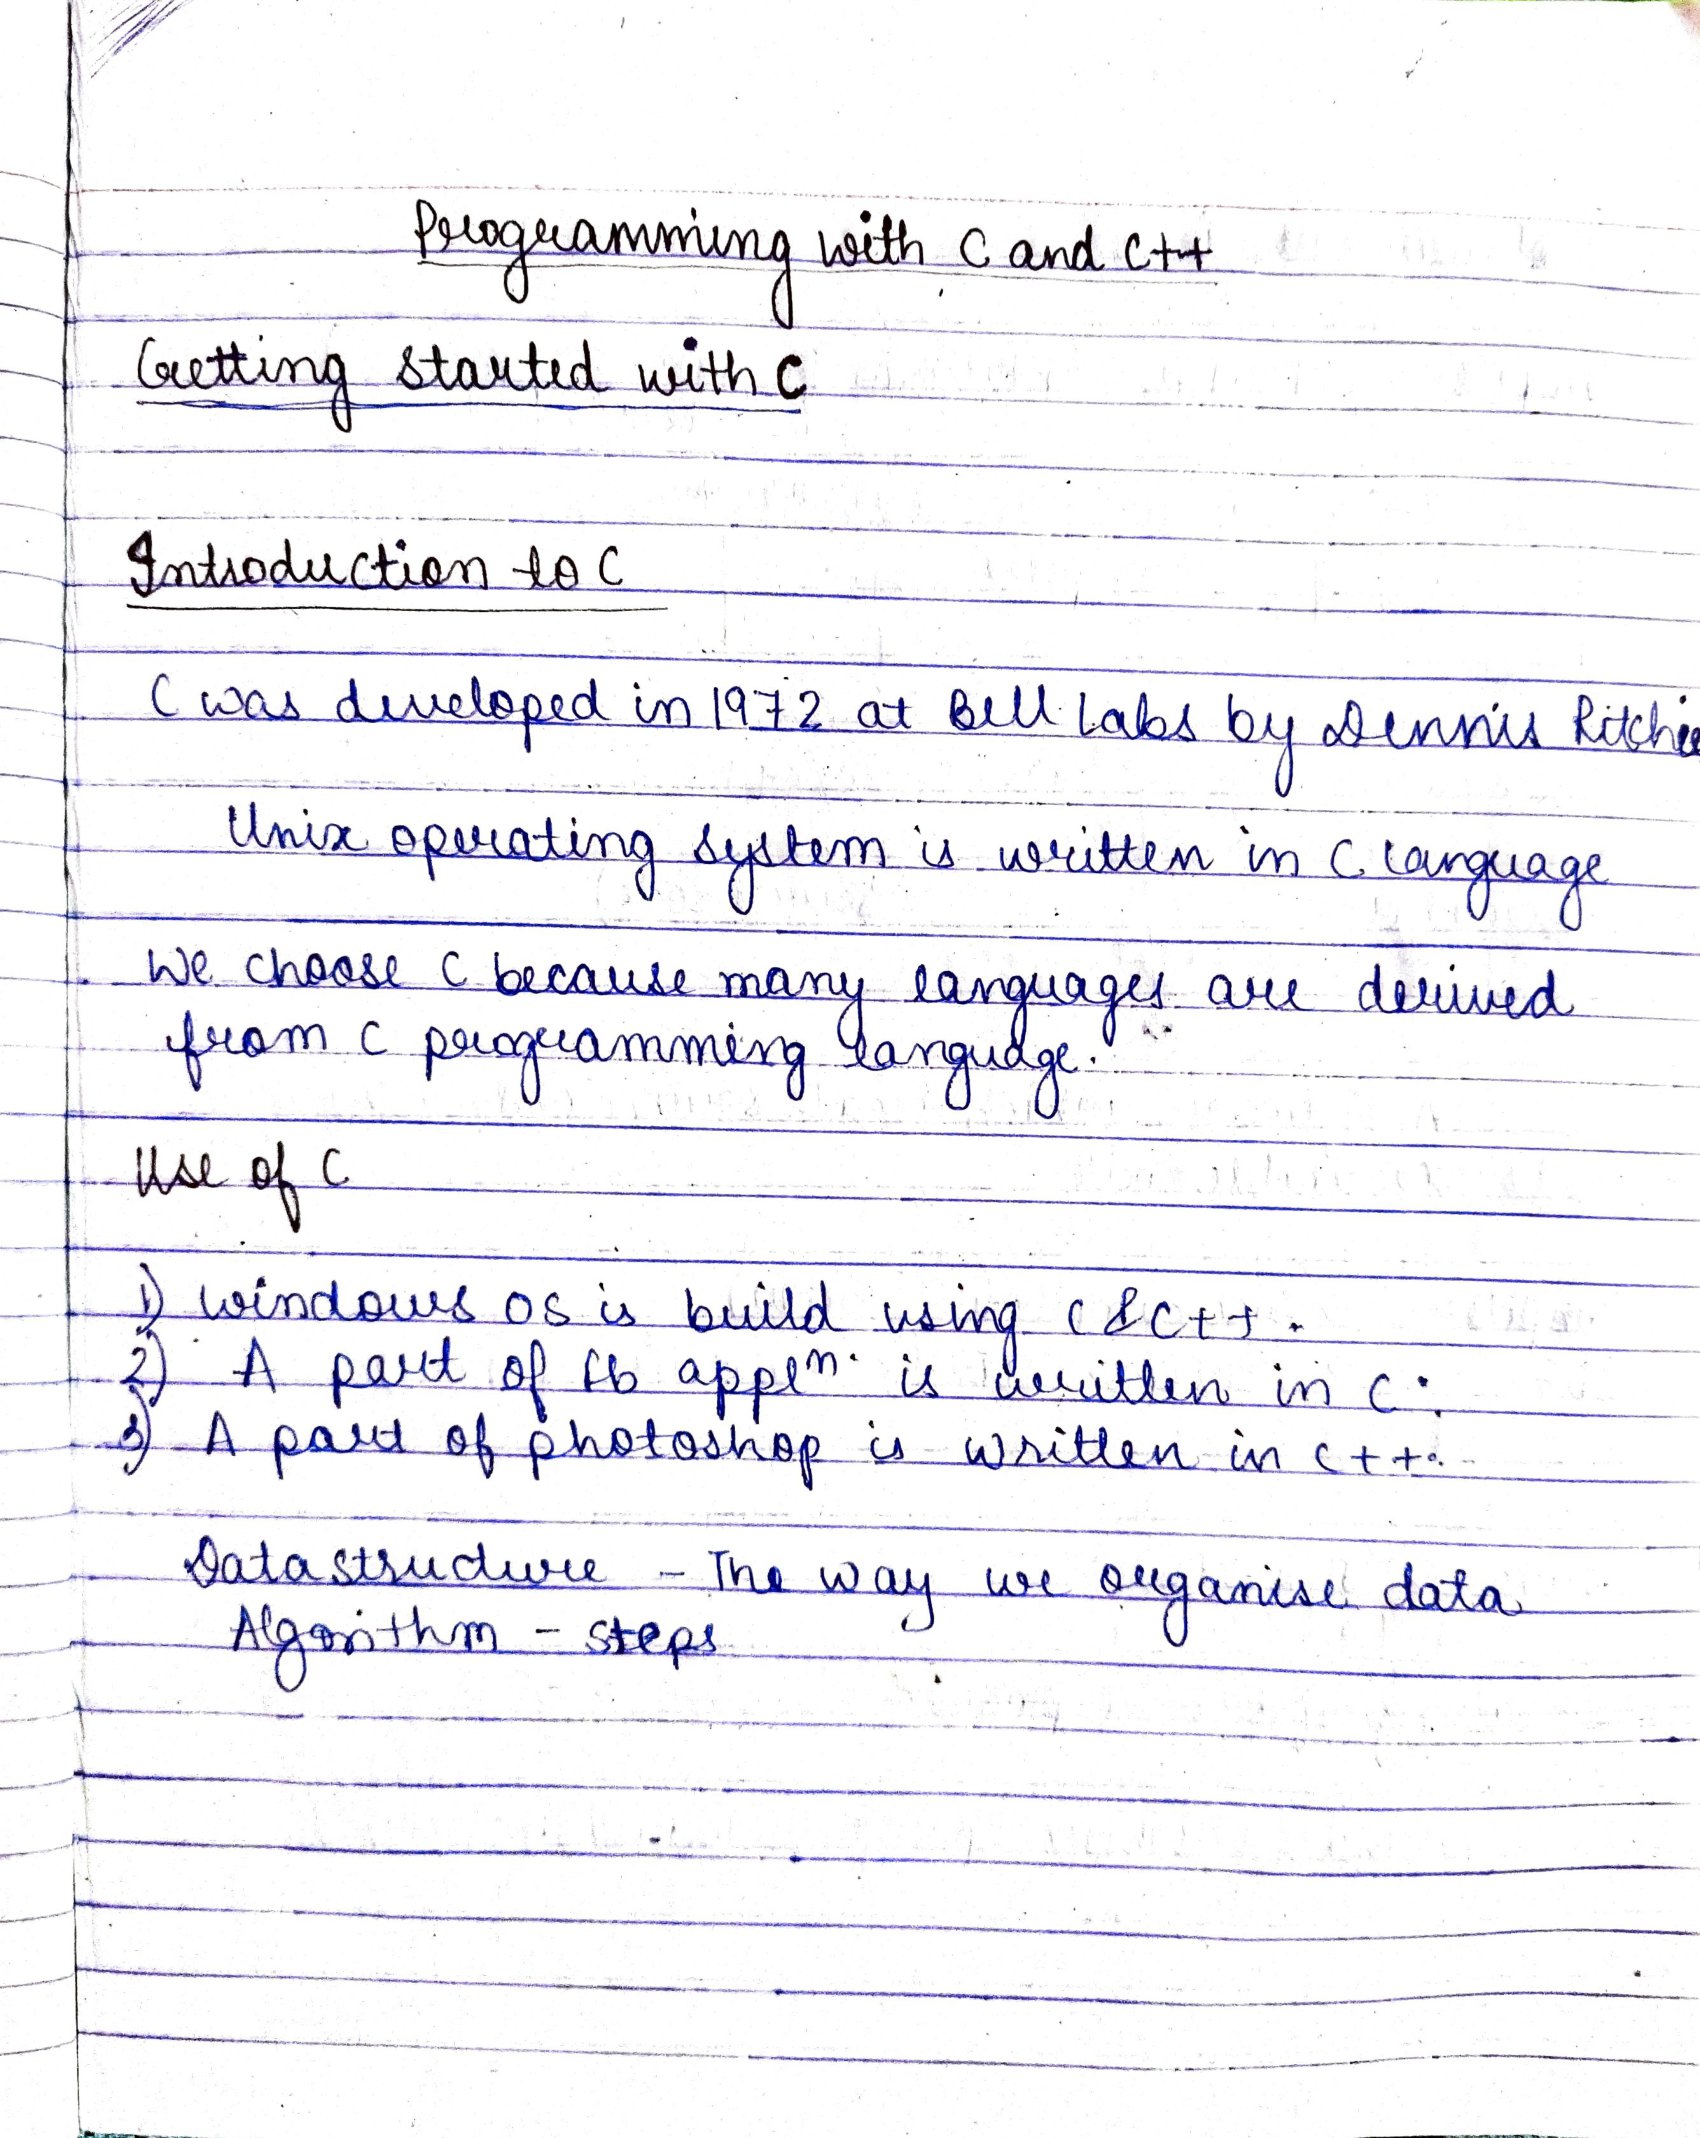 Programming with C and C++
Getting started with C
Introduction to C
C was developed in 1972 at Bell Labs by Dennis Ritchie
Unix operating system is written in C language
We choose C because many languages are derived
from C programming language.
Use of C
1) windows OS is build using C & C++.
2) A part of fb appln. is written in C.
3) A part of photoshop is written in C++.
Datastructure - The way we organise data
Algorithm - steps